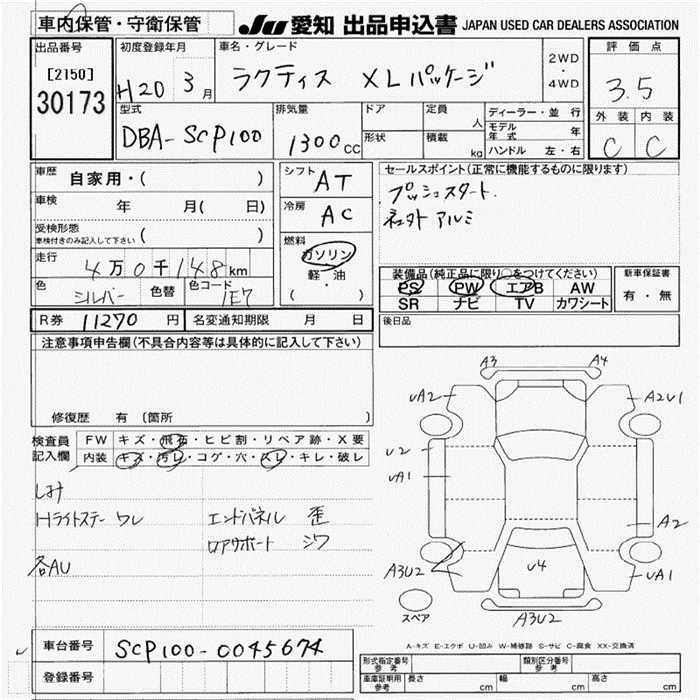 車内保管・守衛保管
JU 愛知 出品申込書 JAPAN USED CAR DEALERS ASSOCIATION
出品番号
[2150]
30173
初度登録年月
H20 3月
車名・グレード
ラクティス XLパッケージ
2WD
・
4WD
評価点
3.5
外装 内装
C C
型式
DBA-SCP100
排気量
1300cc
ドア
形状
定員
人
積載
kg
ディーラー・並行
モデル年式 年
ハンドル 左・右
車歴 自家用・( )
車検 年 月( 日)
受検形態
車検付きのみ記入して下さい ( )
走行 4万0千148km
色 シルバー 色替 色コード 1E7
シフト AT
冷房 AC
燃料
ガソリン
軽・油
( )
セールスポイント(正常に機能するものに限ります)
プッシュスタート.
社外アルミ
装備品(純正品に限り○をつけてください)
PS PW エアB AW
SR ナビ TV カワシート
新車保証書
有・無
R券 11270円 名変通知期限 月 日
後日品
注意事項申告欄(不具合内容等は具体的に記入して下さい)
修復歴 有 (箇所 )
検査員記入欄
FW キズ・飛石・ヒビ割・リペア跡・X要
内装 キズ・汚レ・コゲ・穴・スレ・キレ・破レ
しみ
Hライトステー ワレ エンドパネル 歪
ロアサポート シワ
各AU
A3 A4
UA2 A2U1
U2
UA1
A2
A3U2 U4 UA1
A3U2
スペア
A-キズ E-エクボ U-凹み W-補修跡 S-サビ C-腐食 XX-交換済
車台番号 SCP100-0045674
登録番号
形式指定番号
参考
類別区分番号
参考
車庫証明用
参考
長さ cm 幅 cm 高さ cm